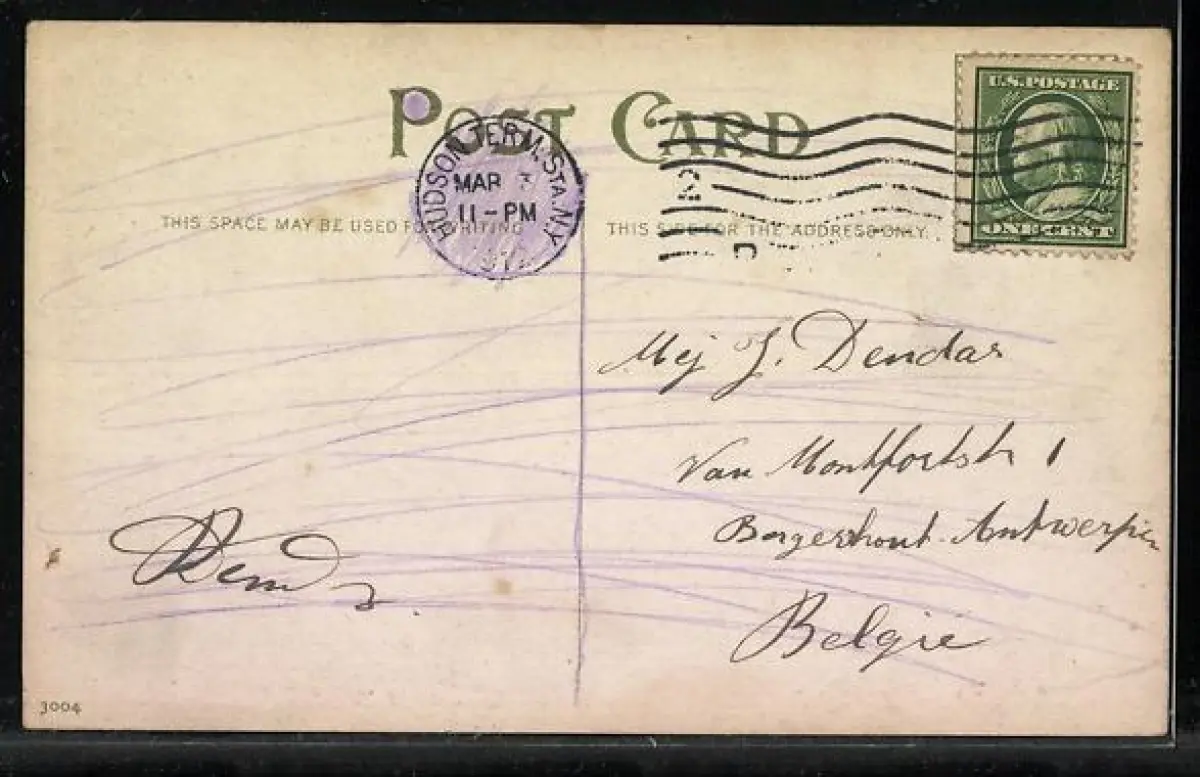 POST CARD
U.S. POSTAGE
ONE CENT
HUDSON TERM. STA. N.Y.
MAR
11-PM
THIS SPACE MAY BE USED FOR WRITING
THIS SIDE FOR THE ADDRESS ONLY.
Mej J. Dendas
Van Montfortstr 1
Borgerhout-Antwerpen
Belgie
3004